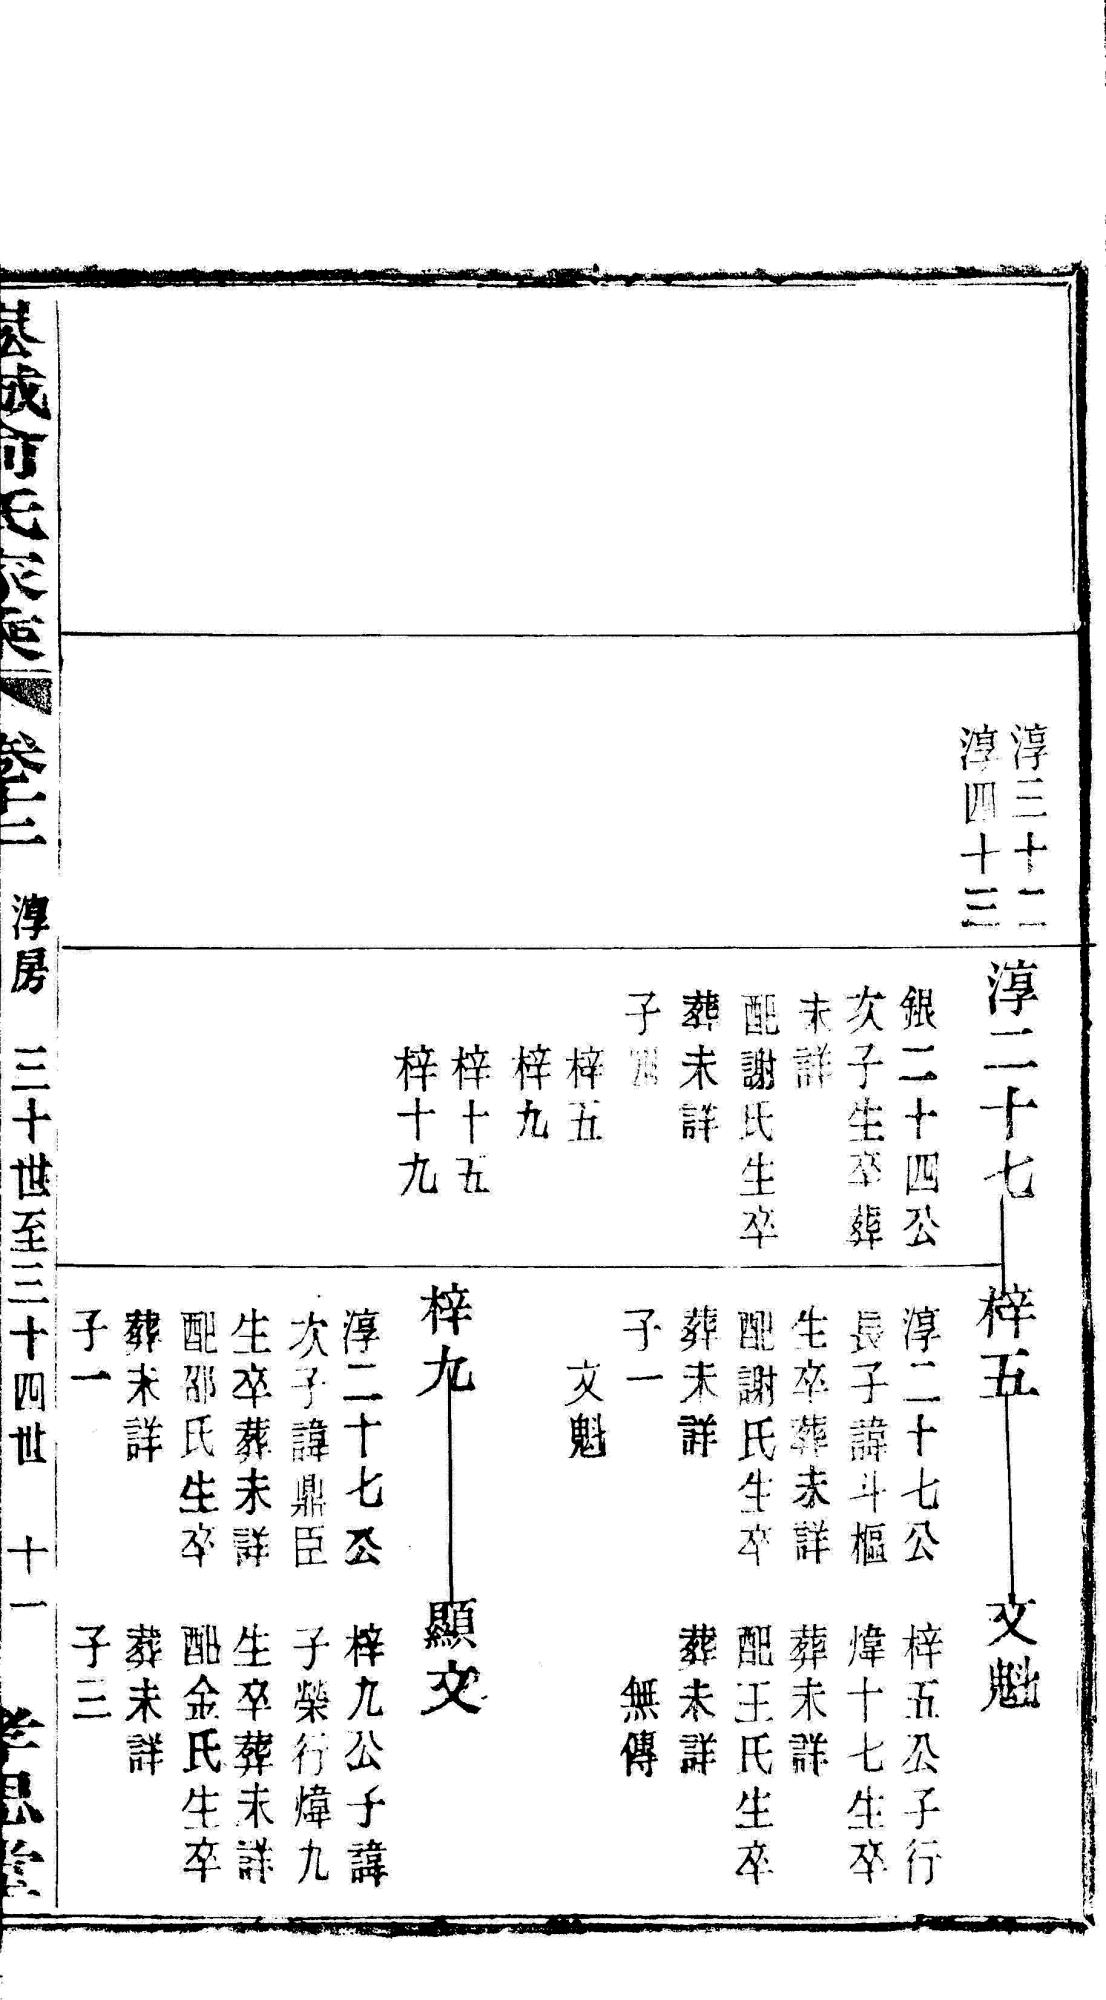 淳三十二
淳四十三
淳二十七
銀二十四公
次子生卒葬
未詳
配謝氏生卒
葬未詳
子四
梓五
梓九
梓十五
梓十九
梓五
淳二十七公
長子諱斗樞
生卒葬未詳
配謝氏生卒
葬未詳
子一
文魁
梓九
淳二十七公
次子諱鼎臣
生卒葬未詳
配邵氏生卒
葬未詳
子一
文魁
梓五公子行
煒十七生卒
葬未詳
配王氏生卒
葬未詳
無傳
顯文
梓九公子諱
子榮行煒九
生卒葬未詳
配金氏生卒
葬未詳
子三
城俞氏家乘 卷十二 淳房 三十世至三十四世 十一 孝思堂